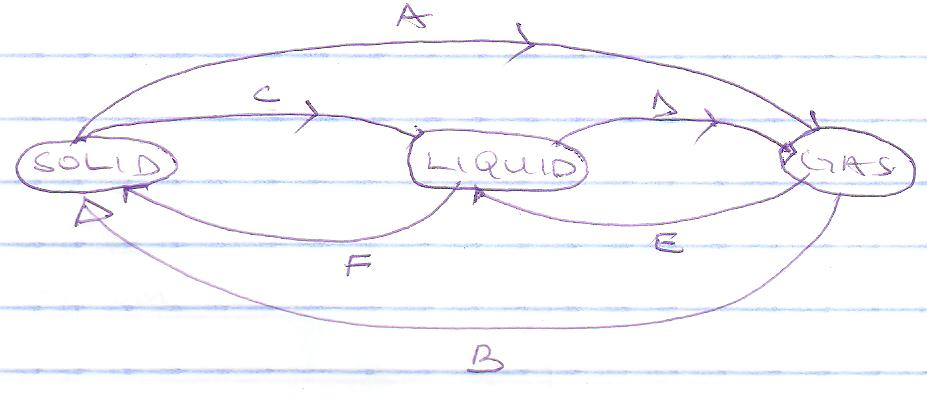 A
C
D
SOLID LIQUID GAS
F
E
B